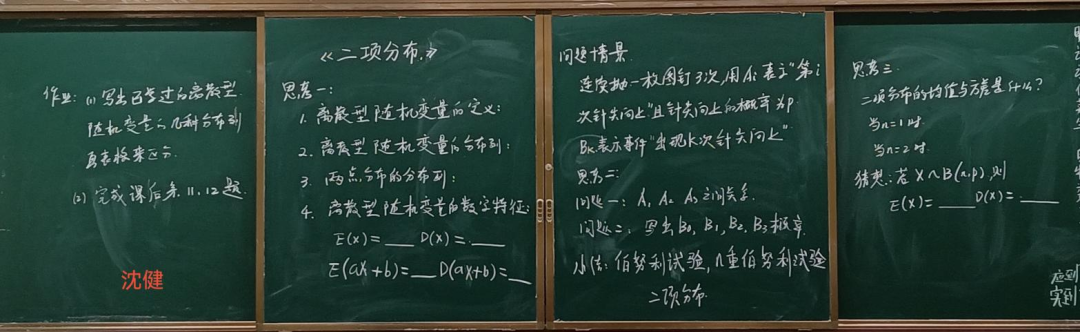 作业: (1) 写出已学过的离散型
随机变量的几种分布列
(2) 完成课后条11.12题.
沈健
《二项分布》
思考一:
1. 离散型随机变量的定义:
2. 离散型随机变量的分布列:
3. 两点分布的分布列:
4. 离散型随机变量的数字特征:
E(X)=___ D(X)=___
E(aX+b)=___D(aX+b)=__
问题情景
连续抛一枚图钉3次,用Ai表示"第i
次针尖向上"且针尖向上的概率为p.
Bk表示事件"出现k次针尖向上"
思考二:
问题一: A₁ A₂ A₃之间关系.
问题二: 写出B₀, B₁, B₂, B₃概率.
小结: 伯努利试验, n重伯努利试验
二项分布.
思考三
二项分布的均值与方差是什么?
当n=1时.
当n=2时.
猜想: 若X~B(n,p),则
E(X)=___ D(X)=___
应到
实到